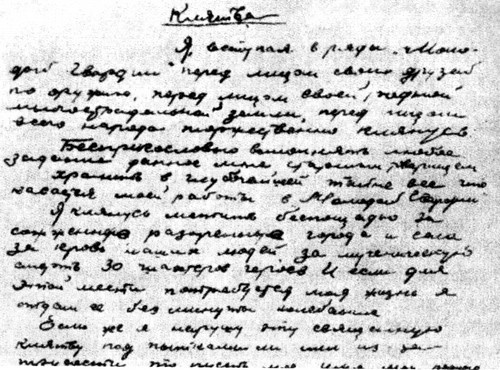 Клятва
Я, вступая в ряды „Моло-
дой Гвардии" перед лицом своих друзей
по оружию, перед лицом своей, родной
многострадальной земли, перед лицом
всего народа торжественно клянусь
Беспрекословно выполнять любое
задание данное мне старшим товарищем
хранить в глубочайшей тайне все что
касается моей работы в Молодой Гвардии
Я клянусь мстить беспощадно за
сожженные разоренные города и села
за кровь наших людей за мученическую
смерть 30 шахтеров героев И если для
этой мести потребуется моя жизнь я
отдам ее без минуты колебания
Если же я нарушу эту священную
клятву под пытками или из-за
трусости то пусть мое имя мои